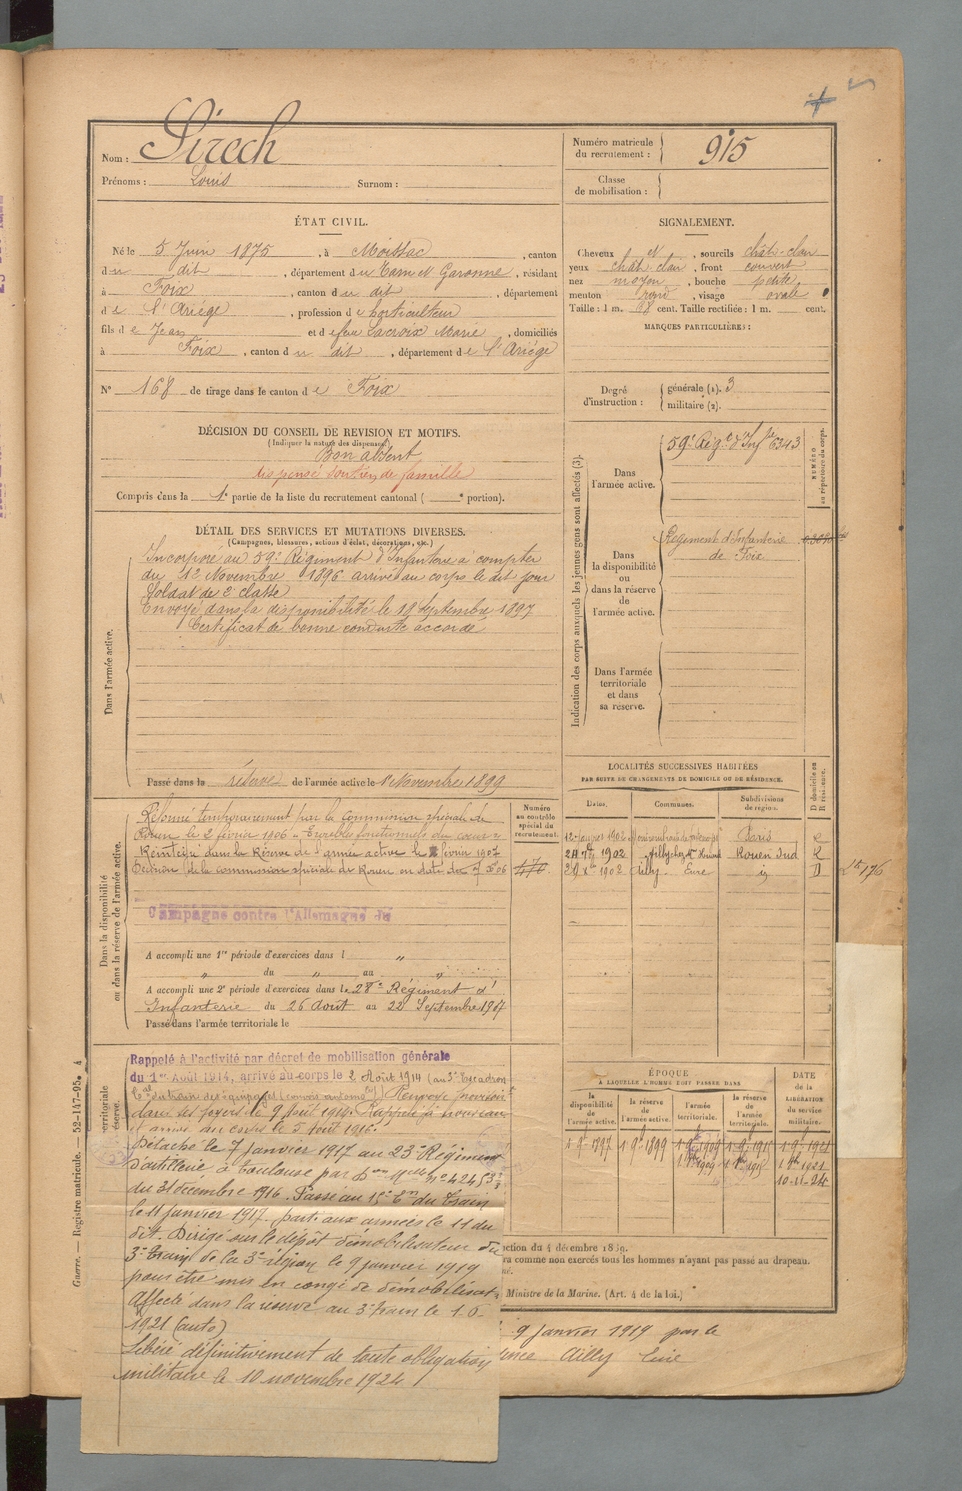 Nom : Sirech
Prénoms : Louis Surnom :
Numéro matricule du recrutement : 915
Classe de mobilisation :
ÉTAT CIVIL.
Né le 5 Juin 1875, à Moissac, canton
du dit, département du Tarn et Garonne, résidant
à Foix, canton du dit, département
de l'Ariége, profession de horticulteur
fils de Jean et de feu Lacroix Marie, domiciliés
à Foix, canton du dit, département de l'Ariége
N° 168 de tirage dans le canton de Foix
SIGNALEMENT.
Cheveux et, sourcils chât-clair
yeux chât clair, front couvert
nez moyen, bouche petite
menton rond, visage ovale
Taille : 1 m. 68 cent. Taille rectifiée : 1 m. cent.
MARQUES PARTICULIÈRES :
Degré d'instruction : générale (1). 3
militaire (2).
DÉCISION DU CONSEIL DE REVISION ET MOTIFS.
(Indiquer la nature des dispenses)
Bon absent
dispensé soutien de famille
Compris dans la 1e partie de la liste du recrutement cantonal ( e portion).
DÉTAIL DES SERVICES ET MUTATIONS DIVERSES.
(Campagnes, blessures, actions d'éclat, décorations, etc.
Dans l'armée active.
Incorporé au 59e Régiment d'Infanterie à compter
du 1er Novembre 1896 arrivé au corps le dit jour
Soldat de 2e classe
Envoyé dans la disponibilité le 19 Septembre 1897
Certificat de bonne conduite accordé
Passé dans la réserve de l'armée active le 1 Novembre 1899
Indication des corps auxquels les jeunes gens sont affectés (3).
NUMÉRO au répertoire du corps.
Dans l'armée active.
59e Régt d'Infie 6343
Dans la disponibilité ou dans la réserve de l'armée active.
Régiment d'Infanterie
de Foix
Dans l'armée territoriale et dans sa réserve.
Dans la disponibilité ou dans la réserve de l'armée active.
Numéro au contrôle spécial du recrutement.
470
Réformé temporairement par la Commission spéciale de
Rouen le 2 février 1906
Réintégré dans la Réserve de l'armée active le 2 février 1907
Décision de la commission spéciale de Rouen en date du
Campagne contre l'Allemagne du
A accompli une 1re période d'exercices dans l "
" du " au "
A accompli une 2e période d'exercices dans le 28e Régiment d'
Infanterie du 26 Août au 22 Septembre 1907
Passé dans l'armée territoriale le
LOCALITÉS SUCCESSIVES HABITÉES
PAR SUITE DE CHANGEMENTS DE DOMICILE OU DE RÉSIDENCE.
Dates. Communes. Subdivisions de région. D domicile ou R résidence.
Paris R
1902 Rouen Sud R
1902 Ailly. Eure id D
ÉPOQUE
À LAQUELLE L'HOMME DOIT PASSER DANS
la disponibilité de l'armée active. la réserve de l'armée active. l'armée territoriale. la réserve de l'armée territoriale.
DATE de la LIBÉRATION du service militaire.
1 9e 1897 1 9e 1899
10-11-24
Rappelé à l'activité par décret de mobilisation générale
du 1er Août 1914, arrivé au corps le 2 Août 1914 (au 3e Escadron
dans ses foyers le
et arrivé au corps le 5 Août 1916.
Détaché le 7 janvier 1917 au 23e Régiment
d'artillerie à Toulouse par
du 31 décembre 1916. Passé au
le 11 janvier 1917. parti aux armées le 11 du
dit. Dirigé sur le dépôt démobilisateur du
3e Train de la 3e région le 9 janvier 1919
pour être mis en congé de démobilisat.
Affecté dans la réserve au 3e Train le 1.6
1921 (auto)
Libéré définitivement de toute obligation
militaire le 10 novembre 1924
ction du 4 décembre 1889.
ra comme non exercés tous les hommes n'ayant pas passé au drapeau.
Ministre de la Marine. (Art. 4 de la loi.)
9 Janvier 1919 par le
ence Ailly Eure
Guerre. — Registre matricule. — 52-147-95. 4